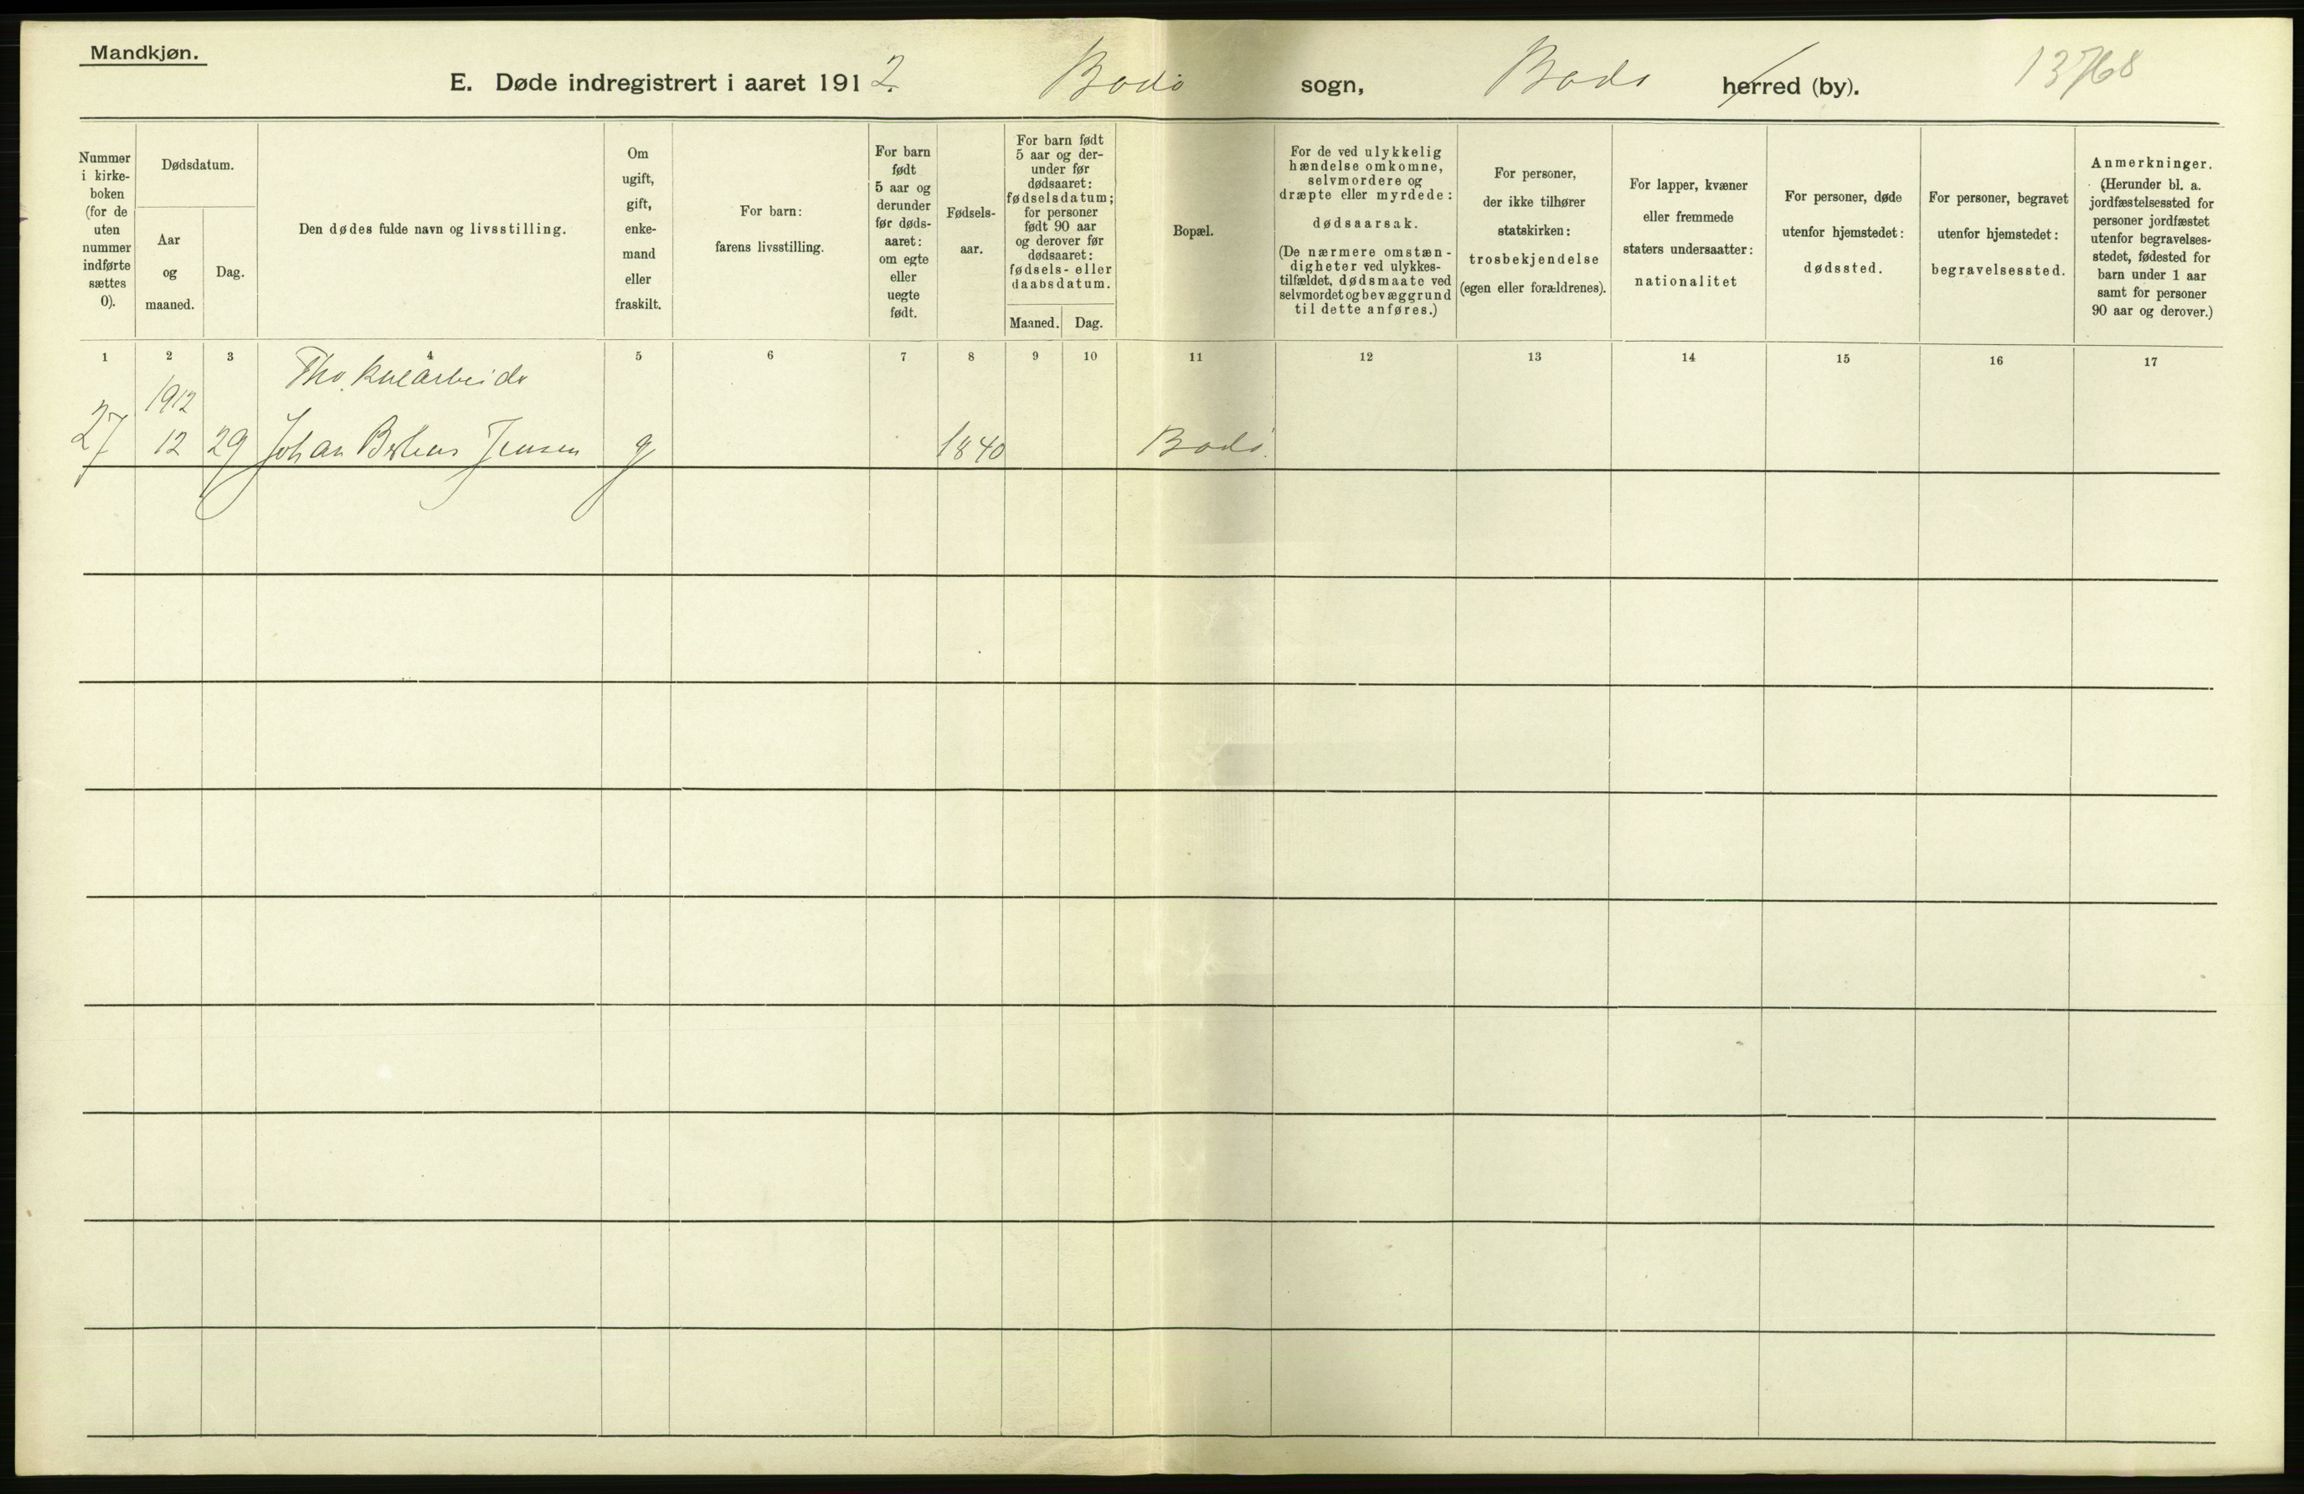 Mandkjøn.
E. Døde indregistrert i aaret 1912. Bodø sogn, Bodø herred (by). 13768
Nummer
i kirke-
boken
(for de
uten
nummer
indførte
sættes
0).
Dødsdatum.
Aar
og
maaned.
Dag.
Den dødes fulde navn og livsstilling.
Om
ugift,
gift,
enke-
mand
eller
fraskilt.
For barn:
farens livsstilling.
For barn
født
5 aar og
derunder
før døds-
aaret:
om egte
eller
uegte
født.
Fødsels-
aar.
For barn født
5 aar og der-
under før
dødsaaret:
fødselsdatum;
for personer
født 90 aar
og derover før
dødsaaret:
fødsels- eller
daabsdatum.
Maaned.
Dag.
Bopæl.
For de ved ulykkelig
hændelse omkomne,
selvmordere og
dræpte eller myrdede:
dødsaarsak.
(De nærmere omstæn-
digheter ved ulykkes-
tilfældet, dødsmaate ved
selvmordet og bevæggrund
til dette anføres.)
For personer,
der ikke tilhører
statskirken:
trosbekjendelse
(egen eller forældrenes).
For lapper, kvæner
eller fremmede
staters undersaatter:
nationalitet
For personer, døde
utenfor hjemstedet:
dødssted.
For personer, begravet
utenfor hjemstedet:
begravelsessted.
Anmerkninger.
(Herunder bl. a.
jordfæstelsessted for
personer jordfæstet
utenfor begravelses-
stedet, fødested for
barn under 1 aar
samt for personer
90 aar og derover.)
1 2 3 4 5 6 7 8 9 10 11 12 13 14 15 16 17
1912
27 12 29 Johan Jensen g 1840 Bodø.